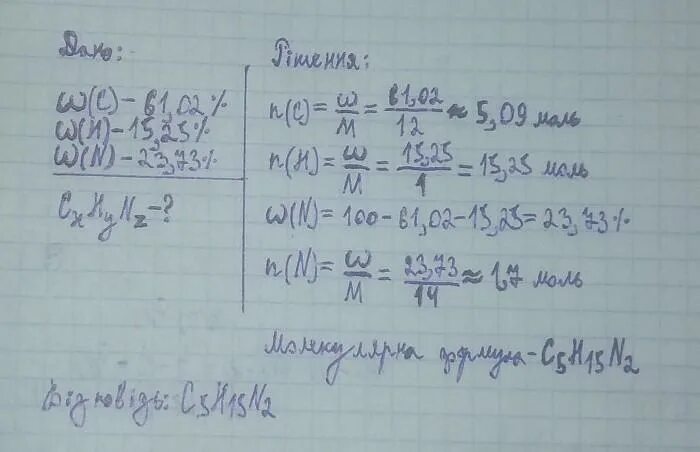 Дано:
ω(C) - 61,02%
ω(H) - 15,25%
ω(N) - 23,73%
CxHyNz - ?
Рішення:
n(C) = ω/M = 61,02/12 ≈ 5,09 моль
n(H) = ω/M = 15,25/1 = 15,25 моль
ω(N) = 100 - 61,02 - 15,25 = 23,73%
n(N) = ω/M = 23,73/14 ≈ 1,7 моль
Молекулярна формула - C5H15N2
Відповідь: C5H15N2